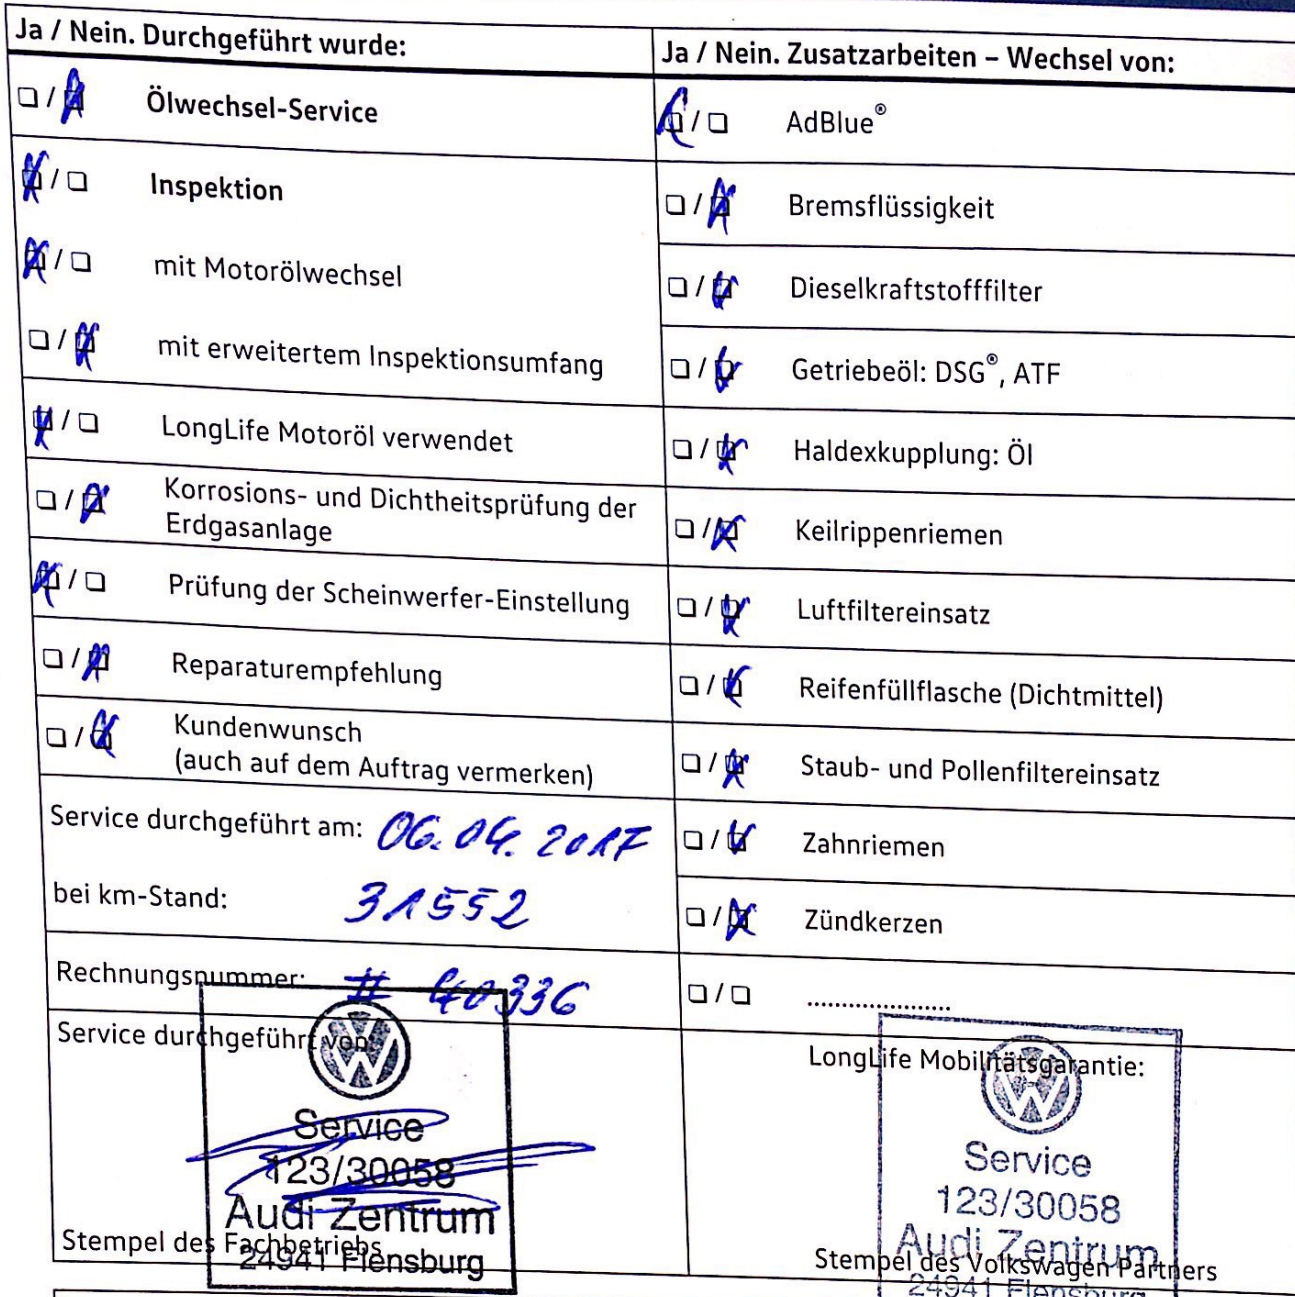 Ja / Nein. Durchgeführt wurde:
☐ / ☒ Ölwechsel-Service
☒ / ☐ Inspektion
☒ / ☐ mit Motorölwechsel
☐ / ☒ mit erweitertem Inspektionsumfang
☒ / ☐ LongLife Motoröl verwendet
☐ / ☒ Korrosions- und Dichtheitsprüfung der
Erdgasanlage
☒ / ☐ Prüfung der Scheinwerfer-Einstellung
☐ / ☒ Reparaturempfehlung
☐ / ☒ Kundenwunsch
(auch auf dem Auftrag vermerken)
Service durchgeführt am: 06.04.2017
bei km-Stand: 31552
Rechnungsnummer: # 40336
Service durchgeführt von:
VW
Service
123/30058
Audi Zentrum
24941 Flensburg
Stempel des Fachbetriebs
Ja / Nein. Zusatzarbeiten – Wechsel von:
☒ / ☐ AdBlue®
☐ / ☒ Bremsflüssigkeit
☐ / ☒ Dieselkraftstofffilter
☐ / ☒ Getriebeöl: DSG®, ATF
☐ / ☒ Haldexkupplung: Öl
☐ / ☒ Keilrippenriemen
☐ / ☒ Luftfiltereinsatz
☐ / ☒ Reifenfüllflasche (Dichtmittel)
☐ / ☒ Staub- und Pollenfiltereinsatz
☐ / ☒ Zahnriemen
☐ / ☒ Zündkerzen
☐ / ☐ .....................
LongLife Mobilitätsgarantie:
VW
Service
123/30058
Audi Zentrum
24941 Flensburg
Stempel des Volkswagen Partners